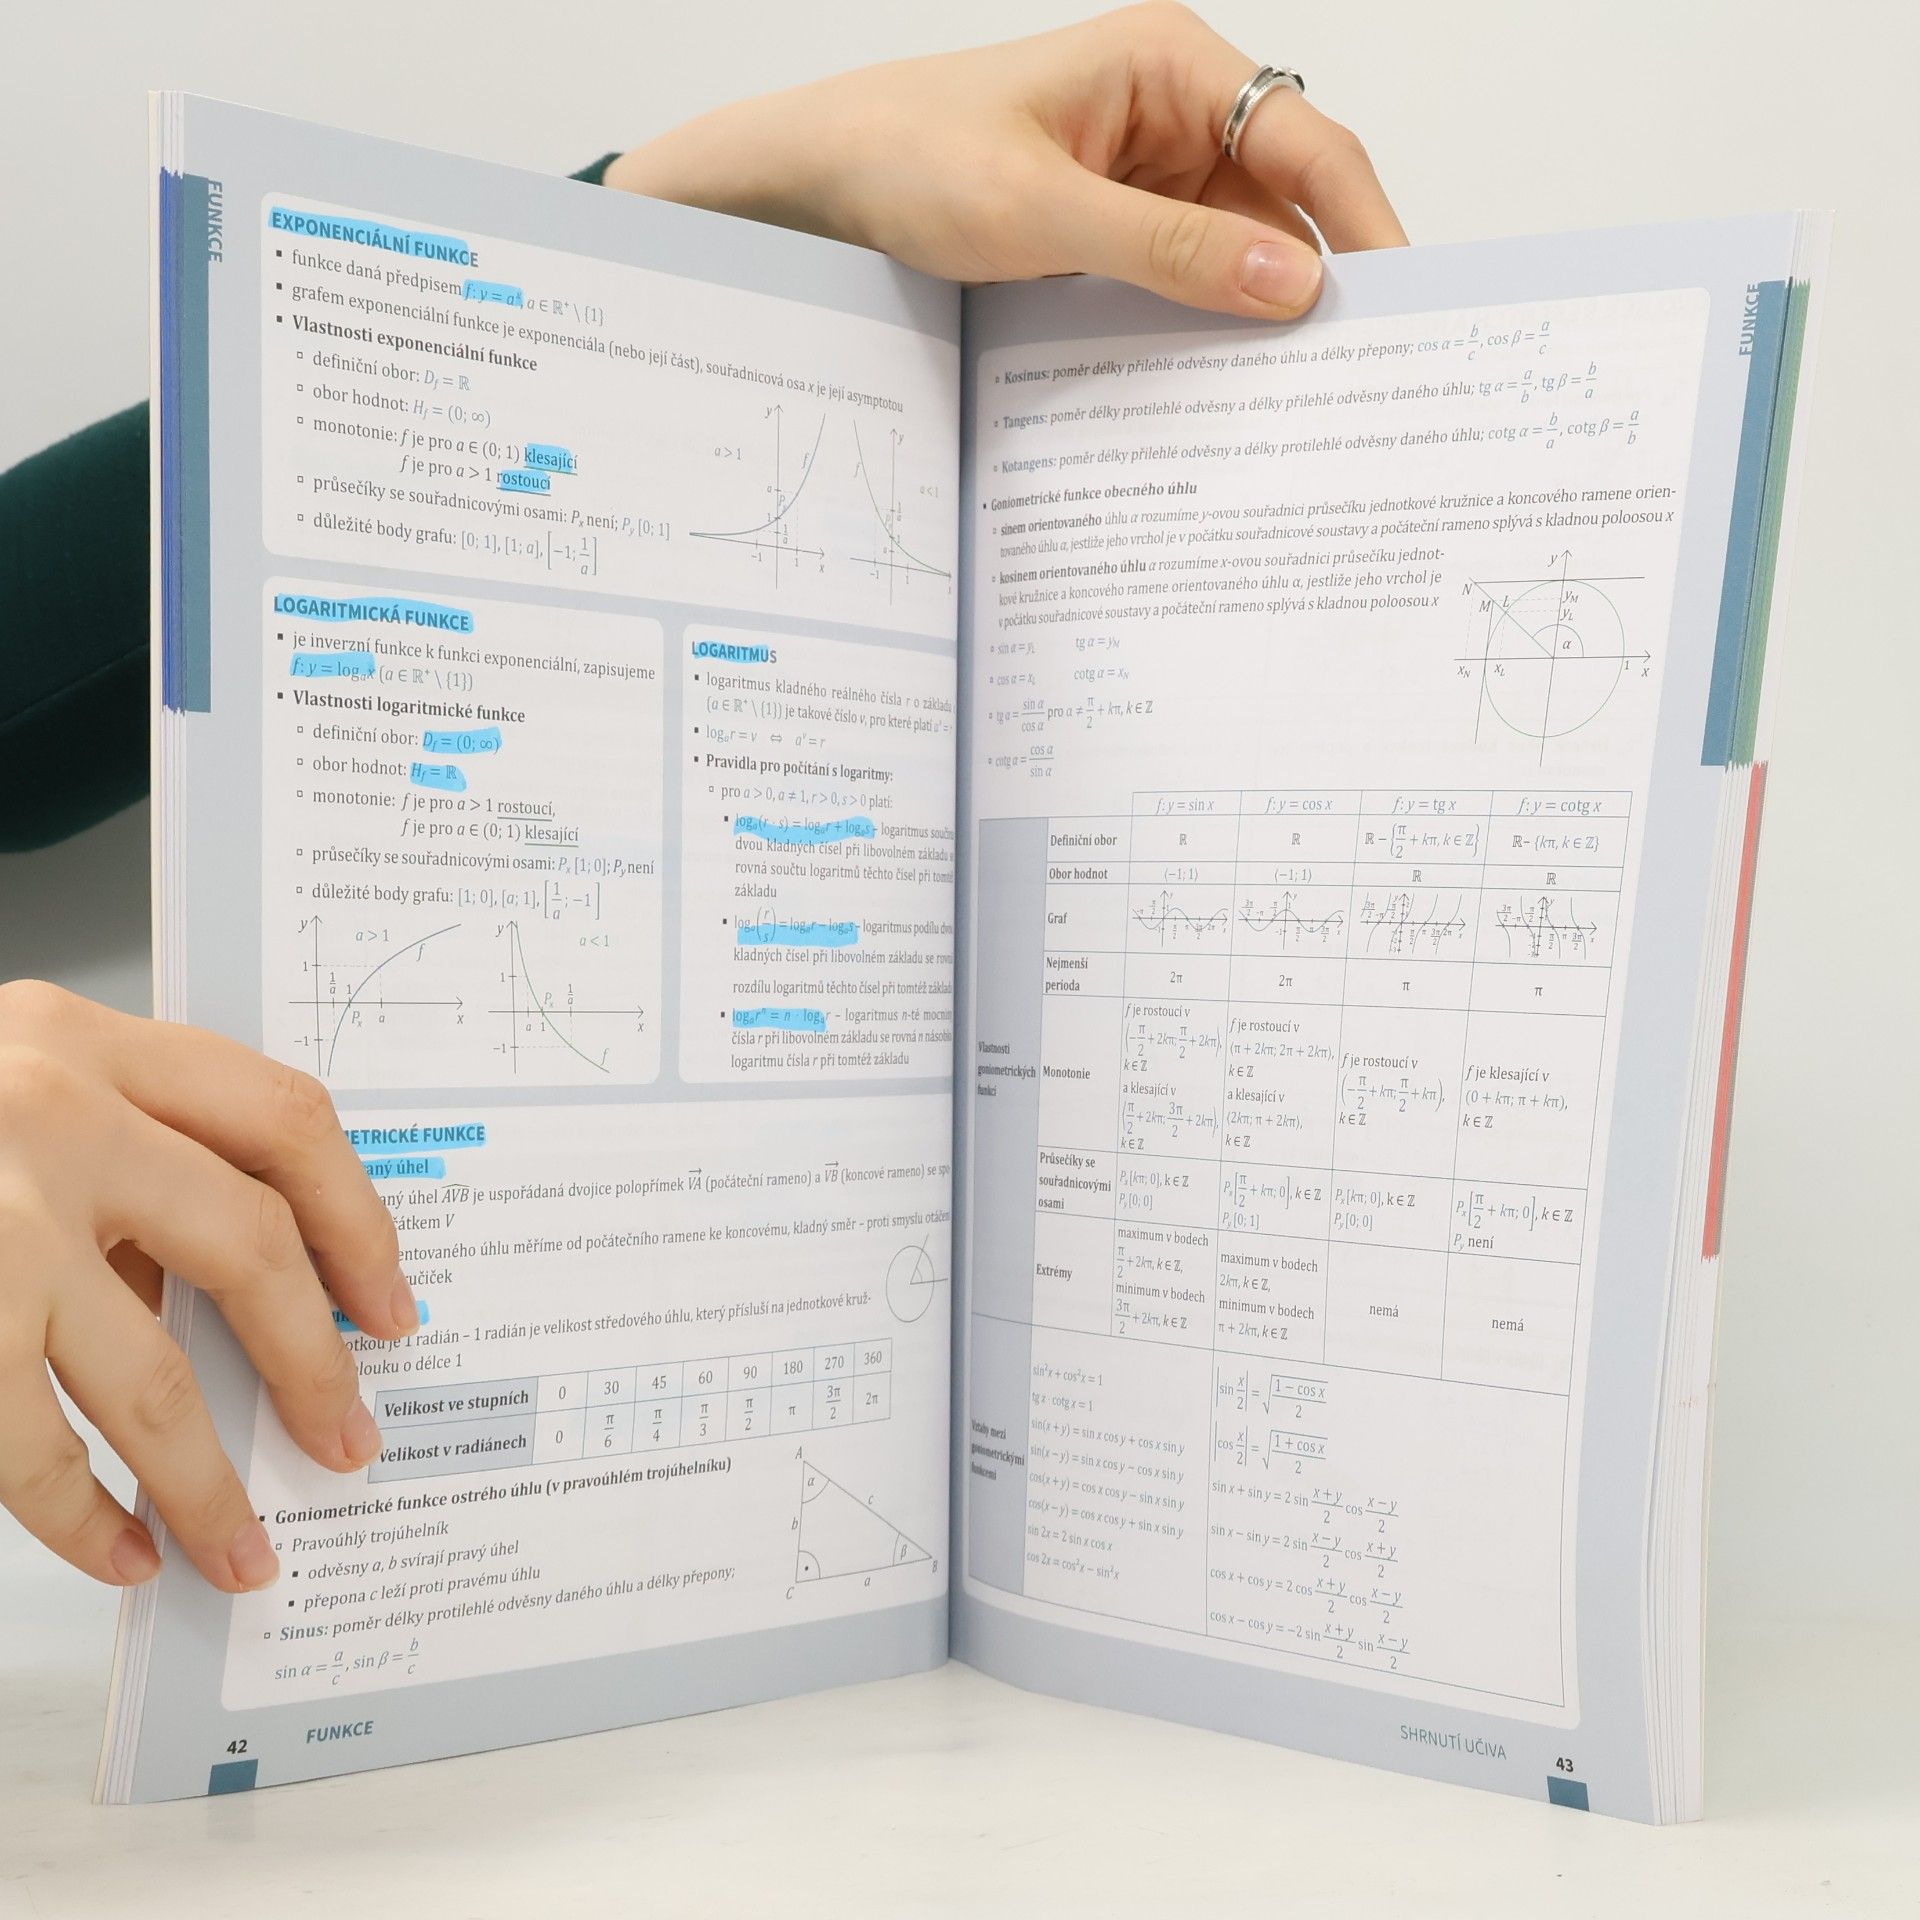 FUNKCE
EXPONENCIÁLNÍ FUNKCE
▪ funkce daná předpisem f: y = aˣ, a ∈ ℝ⁺ \ {1}
▪ grafem exponenciální funkce je exponenciála (nebo její část), souřadnicová osa x je její asymptotou
▪ Vlastnosti exponenciální funkce
▫ definiční obor: D_f = ℝ
▫ obor hodnot: H_f = (0; ∞)
▫ monotonie: f je pro a ∈ (0; 1) klesající
f je pro a > 1 rostoucí
▫ průsečíky se souřadnicovými osami: Pₓ není; P_y [0; 1]
▫ důležité body grafu: [0; 1], [1; a], [−1; 1/a]
a > 1
a < 1
LOGARITMICKÁ FUNKCE
▪ je inverzní funkce k funkci exponenciální, zapisujeme
f: y = logₐx (a ∈ ℝ⁺ \ {1})
▪ Vlastnosti logaritmické funkce
▫ definiční obor: D_f = (0; ∞)
▫ obor hodnot: H_f = ℝ
▫ monotonie: f je pro a > 1 rostoucí,
f je pro a ∈ (0; 1) klesající
▫ průsečíky se souřadnicovými osami: Pₓ [1; 0]; P_y není
▫ důležité body grafu: [1; 0], [a; 1], [1/a; −1]
a > 1
a < 1
LOGARITMUS
▪ logaritmus kladného reálného čísla r o základu
(a ∈ ℝ⁺ \ {1}) je takové číslo v, pro které platí
▪ logₐr = v ⇔ aᵛ = r
▪ Pravidla pro počítání s logaritmy:
▫ pro a > 0, a ≠ 1, r > 0, s > 0 platí:
▪ logₐ(r · s) = logₐr + logₐs – logaritmus
dvou kladných čísel při libovolném základu
rovná součtu logaritmů těchto čísel při
základu
▪ logₐ(r/s) = logₐr − logₐs – logaritmus podílu
kladných čísel při libovolném základu se
rozdílu logaritmů těchto čísel při tomtéž
▪ logₐrⁿ = n · logₐr – logaritmus n-té
čísla r při libovolném základu se rovná n
logaritmu čísla r při tomtéž základu
ETRICKÉ FUNKCE
aný úhel
aný úhel AVB je uspořádaná dvojice polopřímek VA (počáteční rameno) a VB (koncové rameno) se
čátkem V
entovaného úhlu měříme od počátečního ramene ke koncovému, kladný směr – proti smyslu
ručiček
otkou je 1 radián – 1 radián je velikost středového úhlu, který přísluší na jednotkové kruž-
louku o délce 1
Velikost ve stupních 0 30 45 60 90 180 270 360
Velikost v radiánech 0 π/6 π/4 π/3 π/2 π 3π/2 2π
▪ Goniometrické funkce ostrého úhlu (v pravoúhlém trojúhelníku)
▫ Pravoúhlý trojúhelník
▪ odvěsny a, b svírají pravý úhel
▪ přepona c leží proti pravému úhlu
▫ Sinus: poměr délky protilehlé odvěsny daného úhlu a délky přepony;
sin α = a/c, sin β = b/c
A α b c β B C a
42 FUNKCE
FUNKCE
▫ Kosinus: poměr délky přilehlé odvěsny daného úhlu a délky přepony; cos α = b/c, cos β = a/c
▫ Tangens: poměr délky protilehlé odvěsny a délky přilehlé odvěsny daného úhlu; tg α = a/b, tg β = b/a
▫ Kotangens: poměr délky přilehlé odvěsny a délky protilehlé odvěsny daného úhlu; cotg α = b/a, cotg β = a/b
▪ Goniometrické funkce obecného úhlu
▫ sinem orientovaného úhlu α rozumíme y-ovou souřadnici průsečíku jednotkové kružnice a koncového ramene orien-
tovaného úhlu α, jestliže jeho vrchol je v počátku souřadnicové soustavy a počáteční rameno splývá s kladnou poloosou x
▫ kosinem orientovaného úhlu α rozumíme x-ovou souřadnici průsečíku jednot-
kové kružnice a koncového ramene orientovaného úhlu α, jestliže jeho vrchol je
v počátku souřadnicové soustavy a počáteční rameno splývá s kladnou poloosou x
▫ sin α = y_L tg α = y_M
▫ cos α = x_L cotg α = x_N
▫ tg α = sin α/cos α pro α ≠ π/2 + kπ, k ∈ ℤ
▫ cotg α = cos α/sin α
N M L y_M y_L α x_N x_L 1 x y
f: y = sin x f: y = cos x f: y = tg x f: y = cotg x
Vlastnosti goniometrických funkcí
Definiční obor ℝ ℝ ℝ − {π/2 + kπ, k ∈ ℤ} ℝ− {kπ, k ∈ ℤ}
Obor hodnot ⟨−1; 1⟩ ⟨−1; 1⟩ ℝ ℝ
Graf
Nejmenší perioda 2π 2π π π
Monotonie
f je rostoucí v (−π/2 + 2kπ; π/2 + 2kπ), k ∈ ℤ a klesající v (π/2 + 2kπ; 3π/2 + 2kπ), k ∈ ℤ
f je rostoucí v (π + 2kπ; 2π + 2kπ), k ∈ ℤ a klesající v (2kπ; π + 2kπ), k ∈ ℤ
f je rostoucí v (−π/2 + kπ; π/2 + kπ), k ∈ ℤ
f je klesající v (0 + kπ; π + kπ), k ∈ ℤ
Průsečíky se souřadnicovými osami
Pₓ[kπ; 0], k ∈ ℤ P_y[0; 0]
Pₓ[π/2 + kπ; 0], k ∈ ℤ P_y[0; 1]
Pₓ[kπ; 0], k ∈ ℤ P_y[0; 0]
Pₓ[π/2 + kπ; 0], k ∈ ℤ P_y není
Extrémy
maximum v bodech π/2 + 2kπ, k ∈ ℤ, minimum v bodech 3π/2 + 2kπ, k ∈ ℤ
maximum v bodech 2kπ, k ∈ ℤ, minimum v bodech π + 2kπ, k ∈ ℤ
nemá
nemá
Vztahy mezi goniometrickými funkcemi
sin²x + cos²x = 1
tg x · cotg x = 1
sin(x + y) = sin x cos y + cos x sin y
sin(x − y) = sin x cos y − cos x sin y
cos(x + y) = cos x cos y − sin x sin y
cos(x − y) = cos x cos y + sin x sin y
sin 2x = 2 sin x cos x
cos 2x = cos²x − sin²x
|sin x/2| = √((1 − cos x)/2)
|cos x/2| = √((1 + cos x)/2)
sin x + sin y = 2 sin (x + y)/2 cos (x − y)/2
sin x − sin y = 2 sin (x − y)/2 cos (x + y)/2
cos x + cos y = 2 cos (x + y)/2 cos (x − y)/2
cos x − cos y = −2 sin (x + y)/2 sin (x − y)/2
SHRNUTÍ UČIVA 43